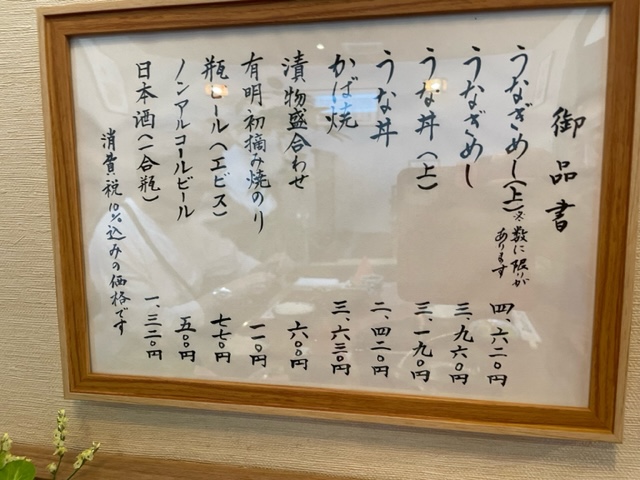 御品書
うなぎめし(上)※数に限りが
あります
四、六二〇円
うなぎめし
三、九六〇円
うな丼(上)
三、一九〇円
うな丼
二、四二〇円
かば焼
三、六三〇円
漬物盛合わせ
六〇〇円
有明初摘み焼のり
一一〇円
瓶ビール(エビス)
七七〇円
ノンアルコールビール
五〇〇円
日本酒(一合瓶)
一、三二〇円
消費税10%込みの価格です